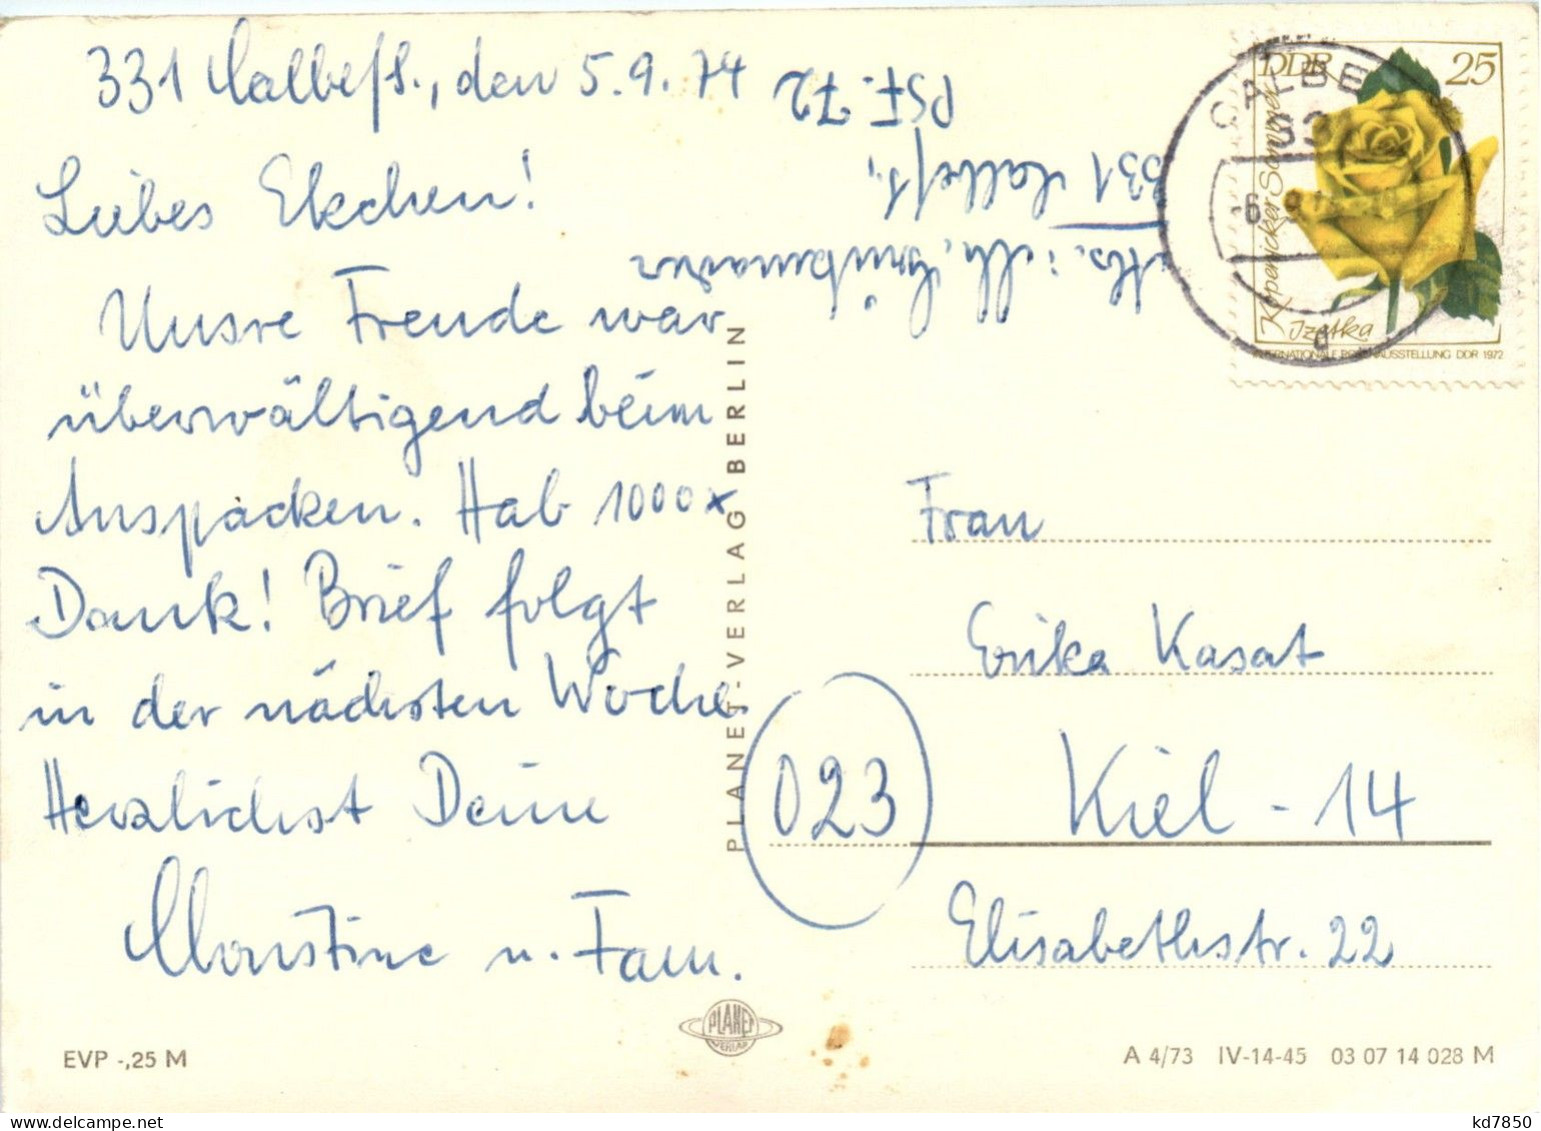 331 Calbe/S., den 5.9.74
Liebes Ekchen!
Unsre Freude war
überwältigend beim
Auspacken. Hab 1000x
Dank! Brief folgt
in der nächsten Woche.
Herzlichst Deine
u. Fam.
EVP -,25 M
PLANET-VERLAG BERLIN
PLANET
VERLAG
331 Calbe/S.,
PSF. 72
DDR 25
Köpenicker Sommer
Izetka
INTERNATIONALE ROSENAUSSTELLUNG DDR 1972
CALBE
331
Frau
Erika Kasat
023
Kiel - 14
Elisabethstr. 22
A 4/73 IV-14-45 03 07 14 028 M
kd7850